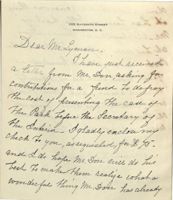 Dear Mr. Lyman:
I have just received
a letter from Mr. Dorr, asking for
contributions for a fund to defray
the cost of presenting the case of
the Park before the Secretary of
the Interior. I gladly enclose my
check to you, as requested, for $
and I do hope Mr. Dorr will do his
best to make them realize what a
wonderful thing Mr. Dorr has already